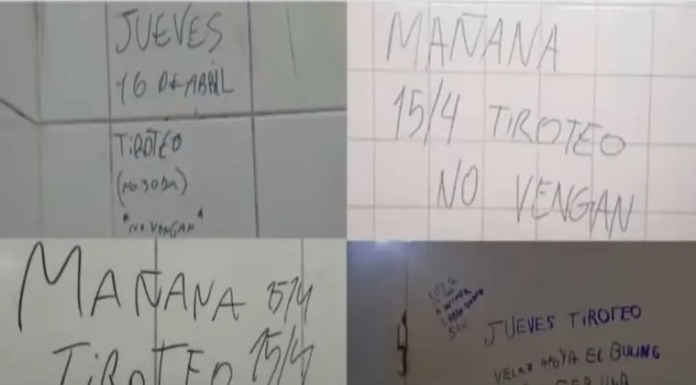 JUEVES
16 DE ABRIL
TIROTEO
(NO JODA)
*NO VENGAN*
MAÑANA
15/4 TIROTEO
NO VENGAN
MAÑANA 15/4
TIROTEO 15/4
JUEVES TIROTEO
APOYA EL BULING